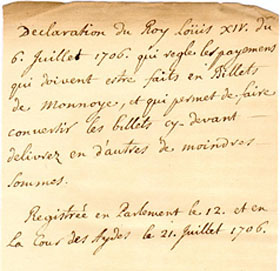 Declaration du Roy Loüis XIV. du
6. Juillet 1706. qui regle les payemens
qui doivent estre faits en Billets
de Monnoye, et qui permet de faire
convertir les billets cy-devant
delivrez en d'autres de moindres
sommes.
Registrée en Parlement le 12. et en
la Cour des Aydes le 21. Juillet 1706.